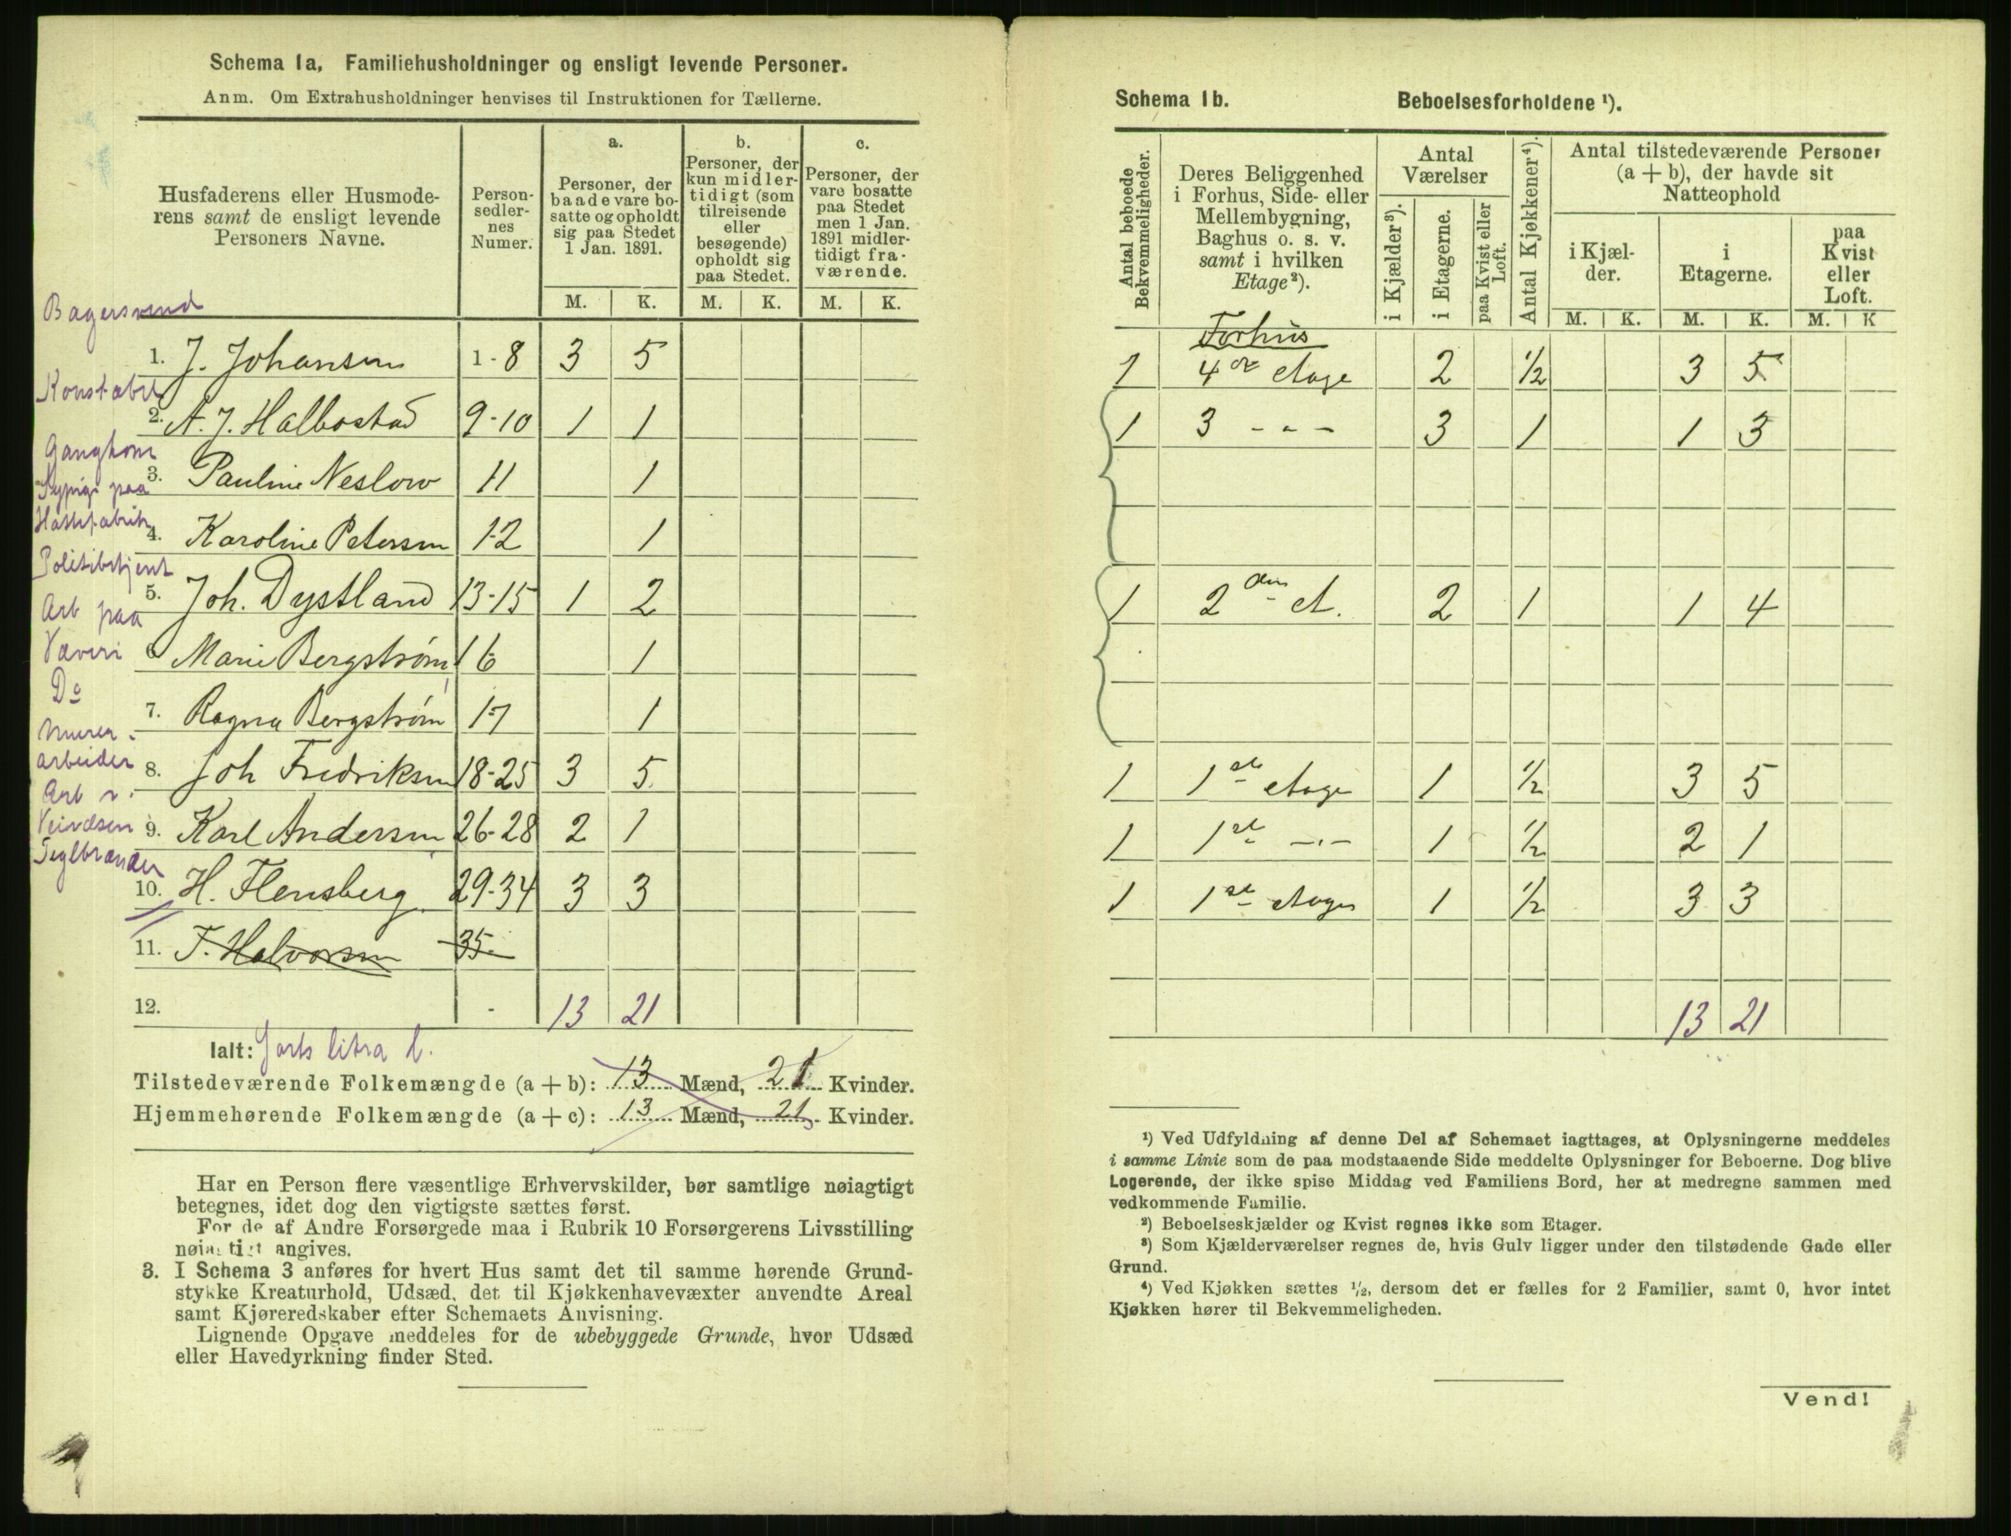 Schema 1a. Familiehusholdninger og ensligt levende Personer.
Anm. Om Extrahusholdninger henvises til Instruktionen for Tællerne.
Husfaderens eller Husmode-
rens samt de ensligt levende
Personers Navne.
Person-
sedler-
nes
Numer.
a.
Personer, der
baade vare bo-
satte og opholdt
sig paa Stedet
1 Jan. 1891.
b.
Personer, der
kun midler-
tidigt (som
tilreisende
eller
besøgende)
opholdt sig
paa Stedet.
c.
Personer, der
vare bosatte
paa Stedet
men 1 Jan.
1891 midler-
tidigt fra-
værende.
M. K. M. K. M. K.
Bagersvend
1. J. Johansen 1-8 3 5
Konstabel
2. A. J. Halbostad 9-10 1 1
Gangkone
3. Pauline Neslow 11 1
Sypige paa
Hattefabrik
4. Karoline Petersen 12 1
Politibetjent
5. Joh. Dystland 13-15 1 2
Arb paa
Væveri
6. Marie Bergstrøm 16 1
Do
7. Ragna Bergstrøm 17 1
Murer-
arbeider
8. Joh Fredriksen 18-25 3 5
Arb v.
Veivæsen
9. Karl Andersen 26-28 2 1
Teglbrænder
10. H. Flensberg 29-34 3 3
11. F. Halvorsen 35-
12. - 13 21
Ialt:
Tilstedeværende Folkemængde (a + b): 13 Mænd, 21 Kvinder.
Hjemmehørende Folkemængde (a + c): 13 Mænd, 21 Kvinder.
Har en Person flere væsentlige Erhvervskilder, bør samtlige nøiagtigt
betegnes, idet dog den vigtigste sættes først.
For de af Andre Forsørgede maa i Rubrik 10 Forsørgerens Livsstilling
nøiagtigt angives.
3. I Schema 3 anføres for hvert Hus samt det til samme hørende Grund-
stykke Kreaturhold, Udsæd, det til Kjøkkenhavevæxter anvendte Areal
samt Kjøreredskaber efter Schemaets Anvisning.
Lignende Opgave meddeles for de ubebyggede Grunde, hvor Udsæd
eller Havedyrkning finder Sted.
Schema 1b. Beboelsesforholdene ¹).
Antal beboede
Bekvemmeligheder.
Deres Beliggenhed
i Forhus, Side- eller
Mellembygning,
Baghus o. s. v.
samt i hvilken
Etage²).
Antal
Værelser
i Kjælder³).
i Etagerne.
paa Kvist eller
Loft.
Antal Kjøkkener⁴).
Antal tilstedeværende Personer
(a + b), der havde sit
Natteophold
i Kjæl-
der.
i
Etagerne.
paa
Kvist
eller
Loft.
M. K. M. K. M. K
Forhus
1 4de etage 2 ½ 3 5
1 3 - „ - 3 1 1 3
1 2den et. 2 1 1 4
1 1ste etage 1 ½ 3 5
1 1ste - „ - 1 ½ 2 1
1 1ste etage 1 ½ 3 3
13 21
¹) Ved Udfyldning af denne Del af Schemaet iagttages, at Oplysningerne meddeles
i samme Linie som de paa modstaaende Side meddelte Oplysninger for Beboerne. Dog blive
Logerende, der ikke spise Middag ved Familiens Bord, her at medregne sammen med
vedkommende Familie.
²) Beboelseskjælder og Kvist regnes ikke som Etager.
³) Som Kjælderværelser regnes de, hvis Gulv ligger under den tilstødende Gade eller
Grund.
⁴) Ved Kjøkken sættes ½, dersom det er fælles for 2 Familier, samt 0, hvor intet
Kjøkken hører til Bekvemmeligheden.
Vend!